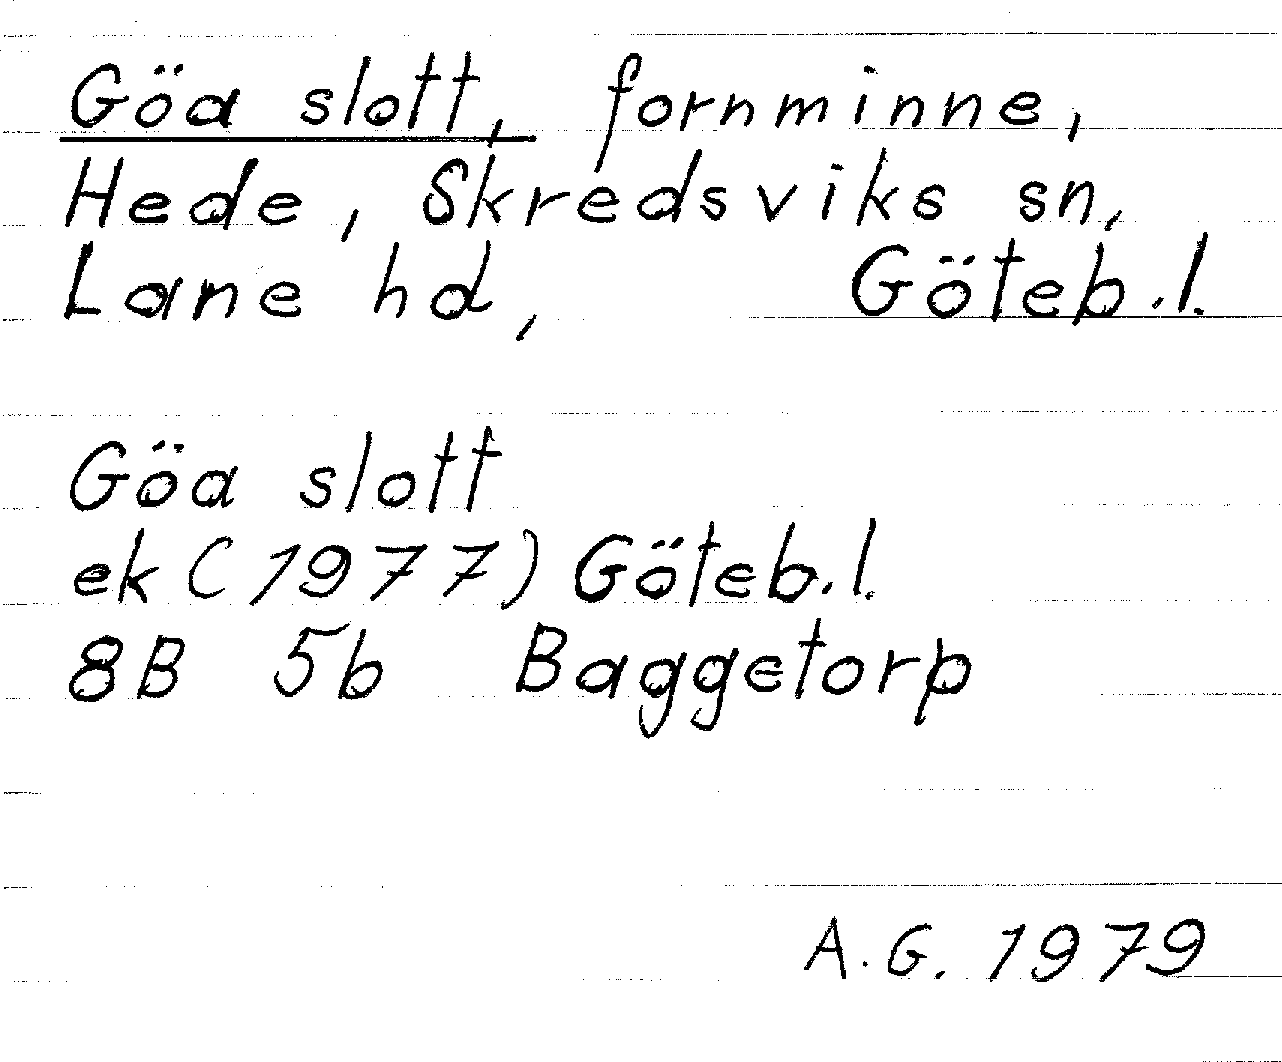 Göa slott, fornminne,
Hede, Skredsviks sn,
Lane hd, Göteb.l.
Göa slott
ek (1977) Göteb.l.
8B 5b Baggetorp
A.G. 1979